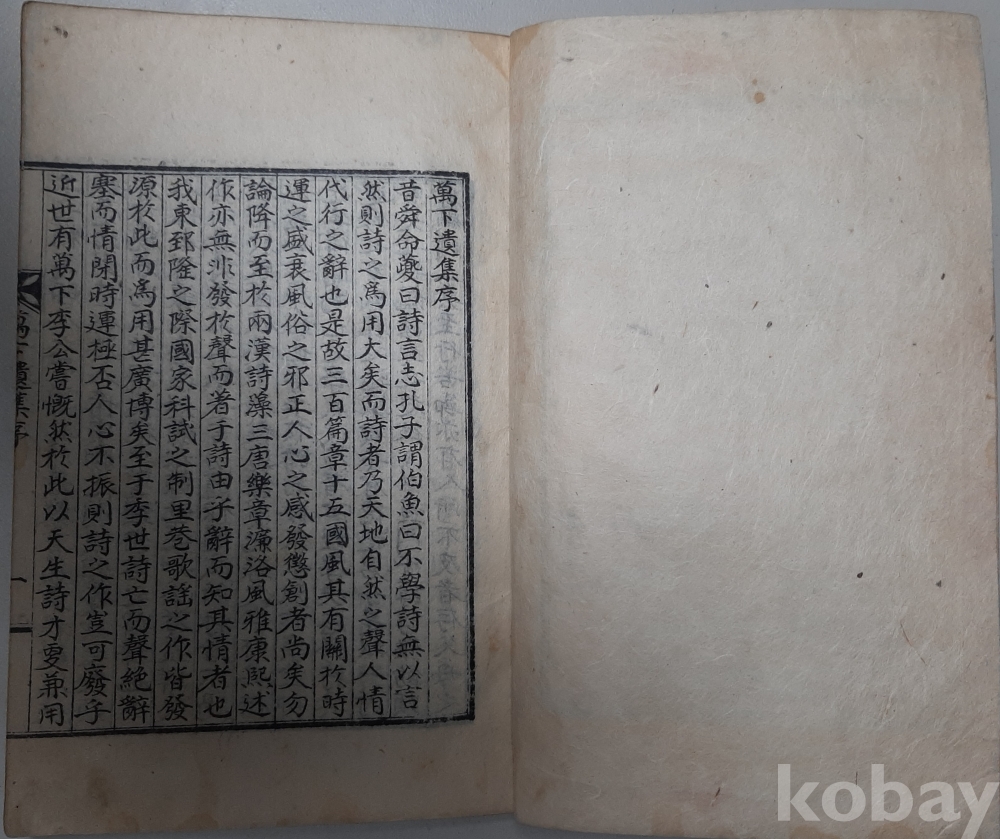 萬下遺集序
昔舜命夔曰詩言志孔子謂伯魚曰不學詩無以言
然則詩之爲用大矣而詩者乃天地自然之聲人情
代行之辭也是故三百篇章十五國風其有關於時
運之盛衰風俗之邪正人心之感發懲創者尚矣勿
論降而至於兩漢詩藻三唐樂章濂洛風雅康熙述
作亦無非發於聲而著于詩由乎辭而知其情者也
我東郅隆之際國家科試之制里巷歌謠之作皆發
源於此而爲用甚廣博矣至于季世詩亡而聲絕辭
塞而情閉時運極否人心不振則詩之作豈可廢乎
近世有萬下李公嘗慨然於此以天生詩才夐兼用
萬下遺集序
一
kobay